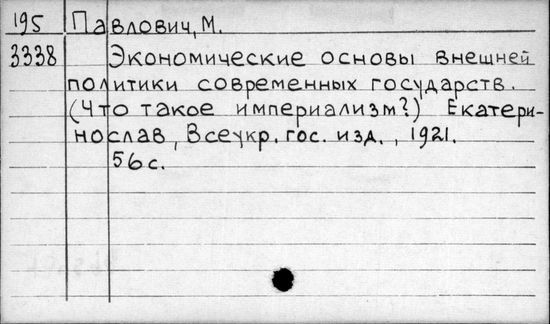 195 Павлович, М.
3338 Экономические основы внешней
политики современных государств.
(Что такое империализм?) Екатери-
нослав, Всеукр. гос. изд., 1921.
56 с.